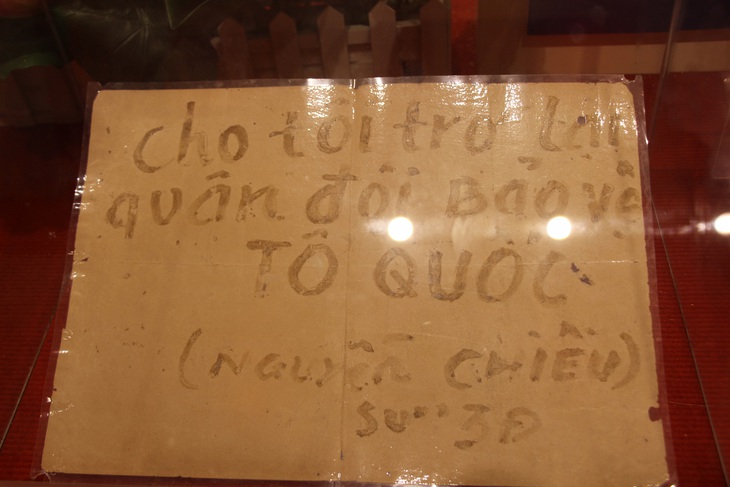 Cho tôi trở lại
quân đội Bảo vệ
TỔ QUỐC
(NGUYỄN CHIỀU)